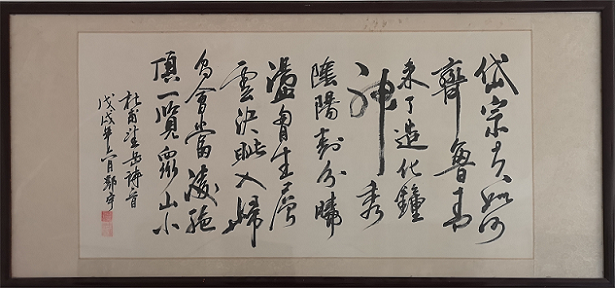 岱宗夫如何
齊魯青
未了造化鐘
神秀
陰陽割分曉
盪胷生層
雲決眦入歸
鳥會當淩絕
頂一覽眾山小
杜甫望岳詩
戊戌年六月